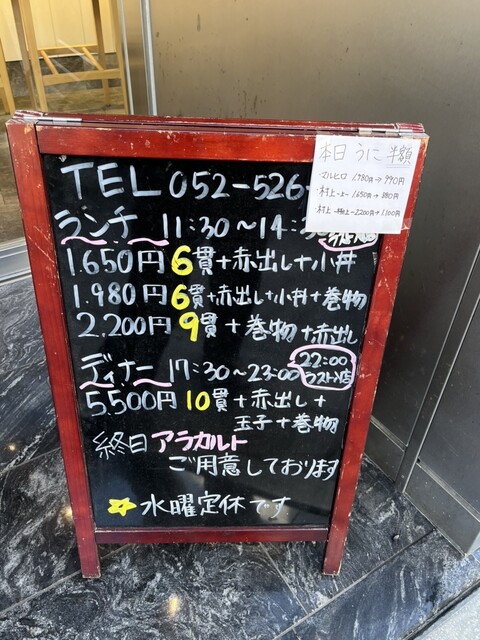 TEL 052-526-
本日 うに 半額
・マルヒロ 1.980円→990円
・村上-上- 1.650円→880円
・村上 -特上- 2.200円→1.100円
ランチ 11:30～14:
1.650円 6貫+赤出し+小丼
1.980円 6貫+赤出し+小丼+巻物
2.200円 9貫+巻物+赤出し
ディナー 17:30～23:00
22:00
ラスト入店
5.500円 10貫+赤出し+
玉子+巻物
終日 アラカルト
ご用意しております
☆水曜定休です